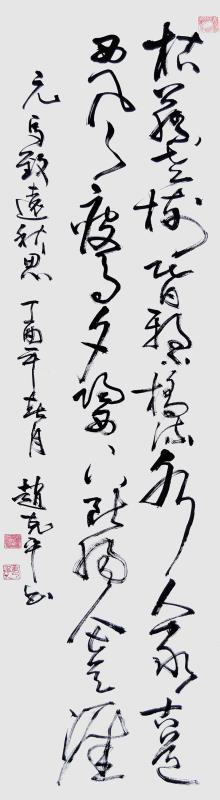 枯藤老樹昏鴉小橋流水人家古道
西风瘦马夕陽西下断腸人在天涯
元馬致遠秋思 丁酉年春月 趙克平书